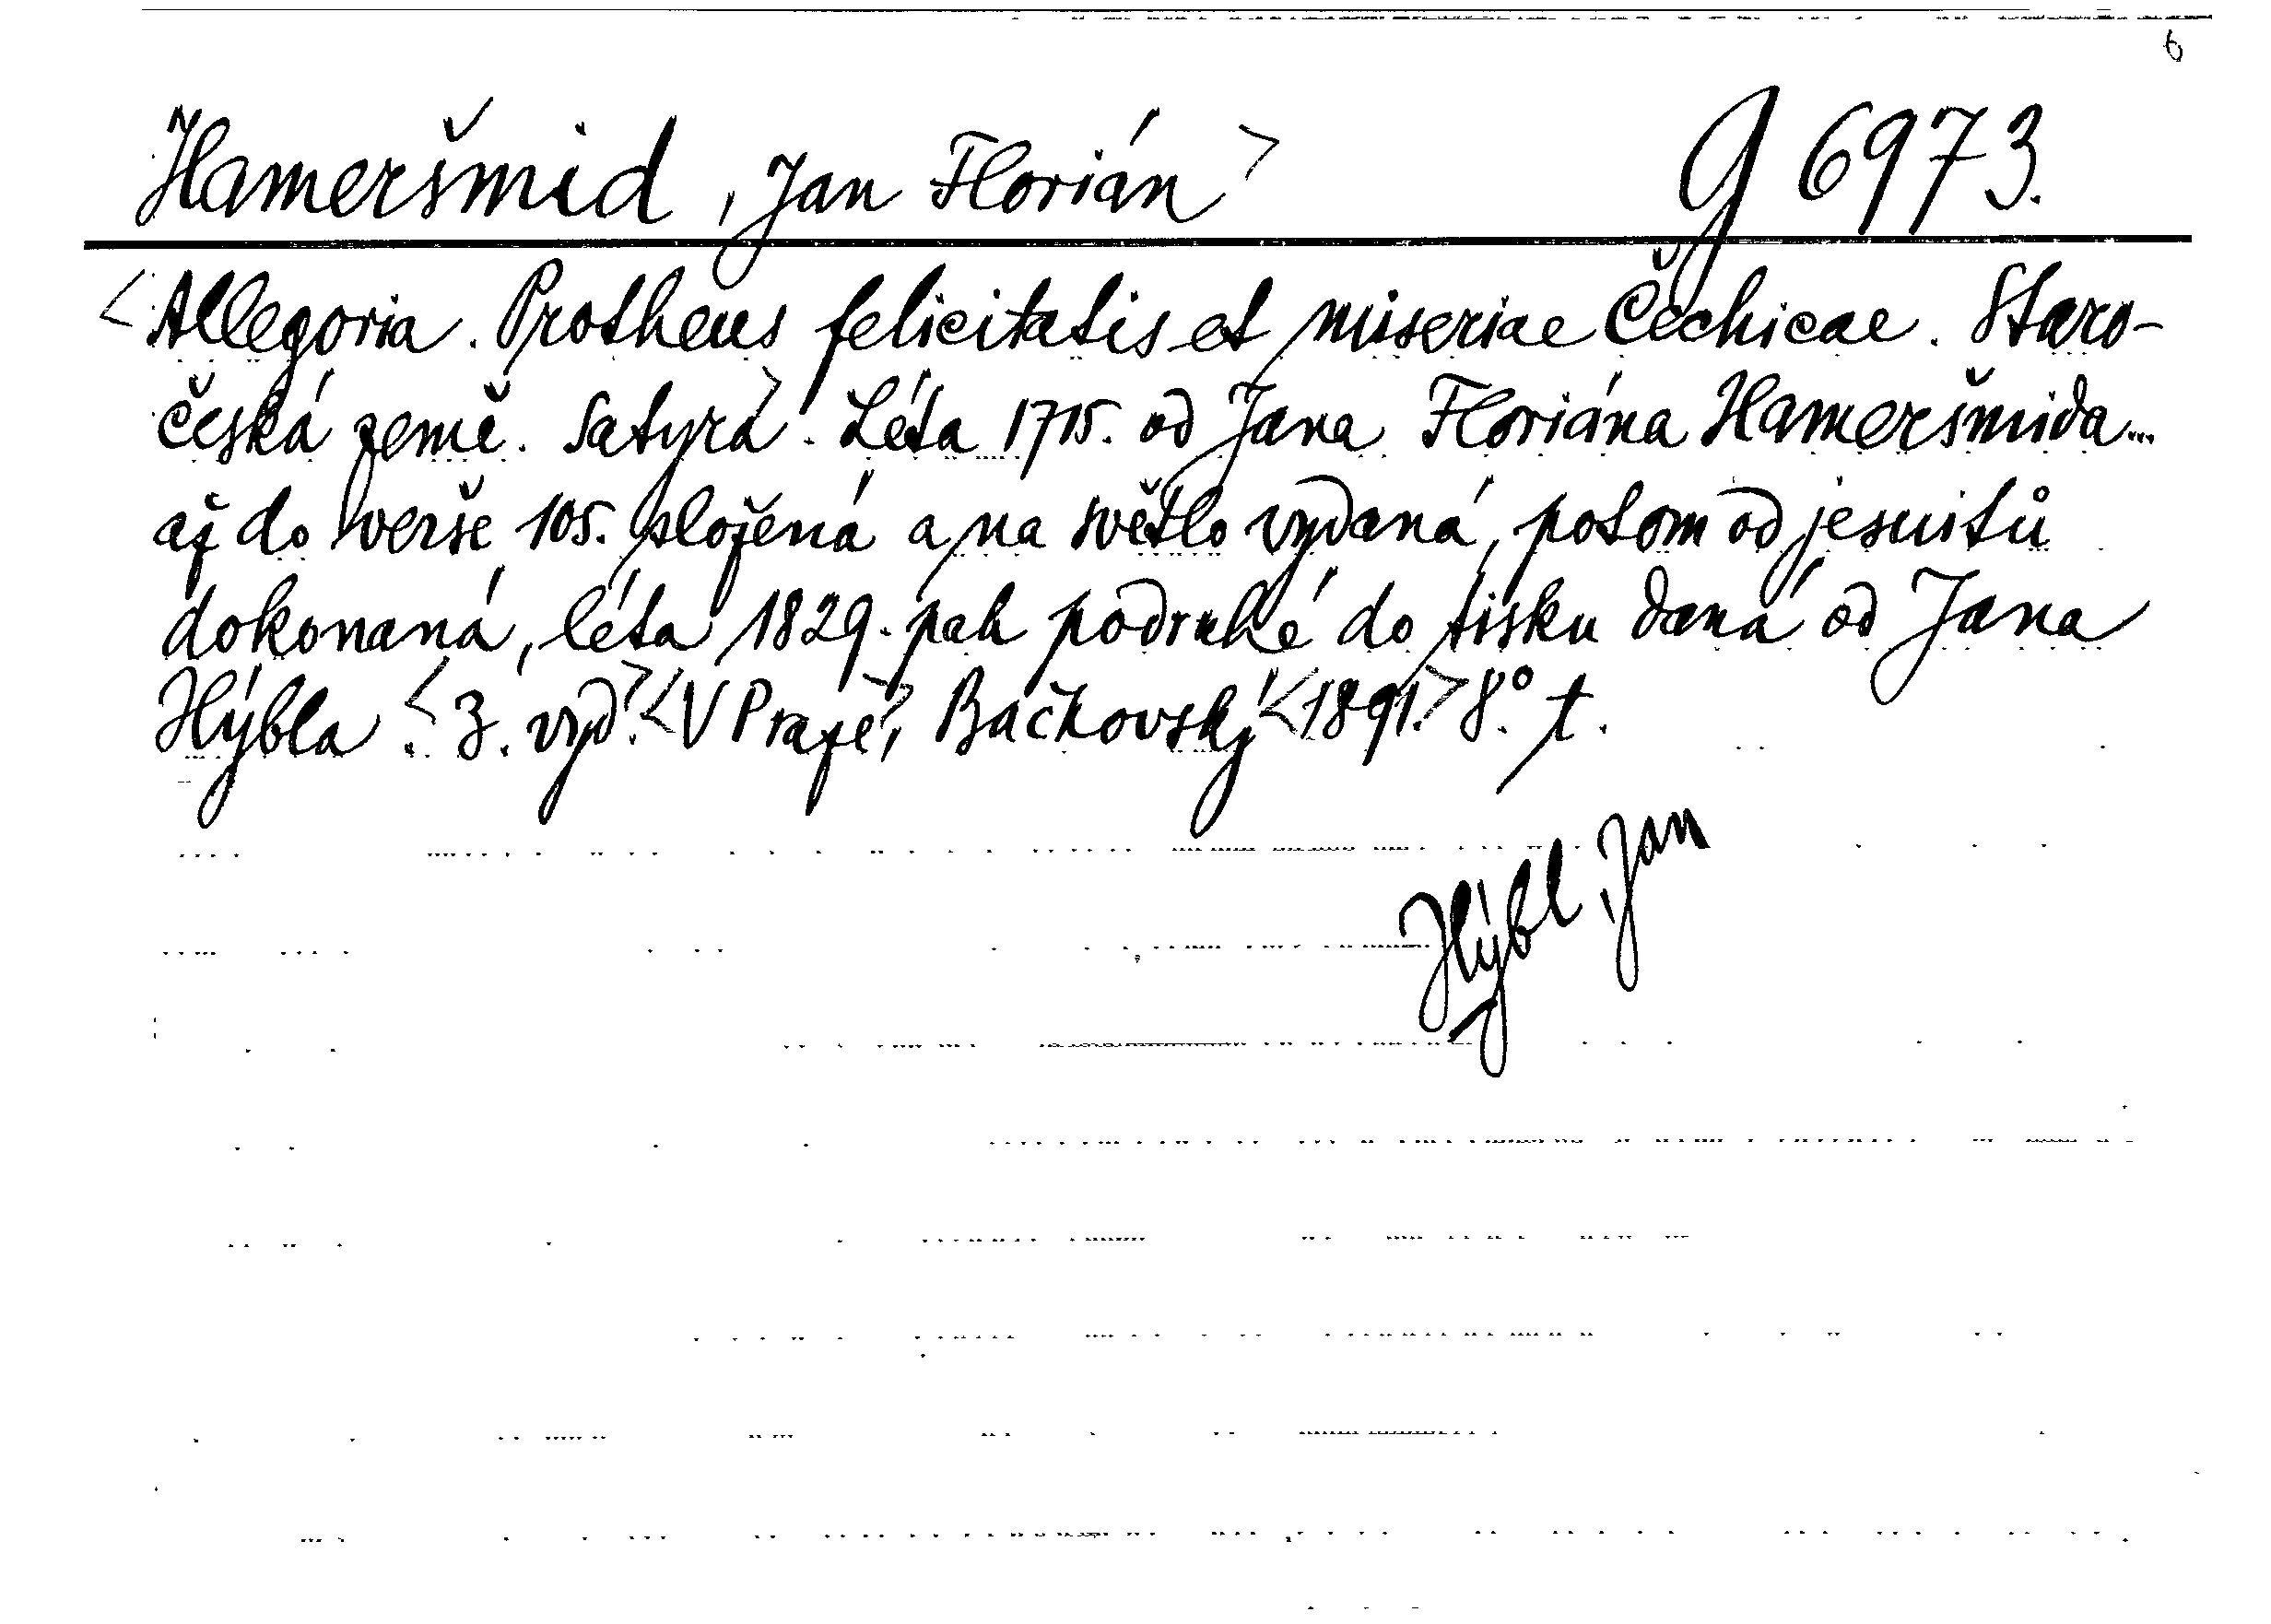 6
Hameršmid, Jan Florián> g 6973.
<Allegoria. Protheus felicitatis et miseriae Čechicae. Staro-
česká země. Satyra>. Léta 1715. od Jana Floriána Hameršmida...
až do verše 105. složená a na světlo vydaná, potom od jesuitů
dokonaná, léta 1829. pak podruhé do tisku daná od Jana
Hýbla. <3. vyd.> <V Praze>, Bačkovský <1891.> 8.° t.
Hýbl, Jan